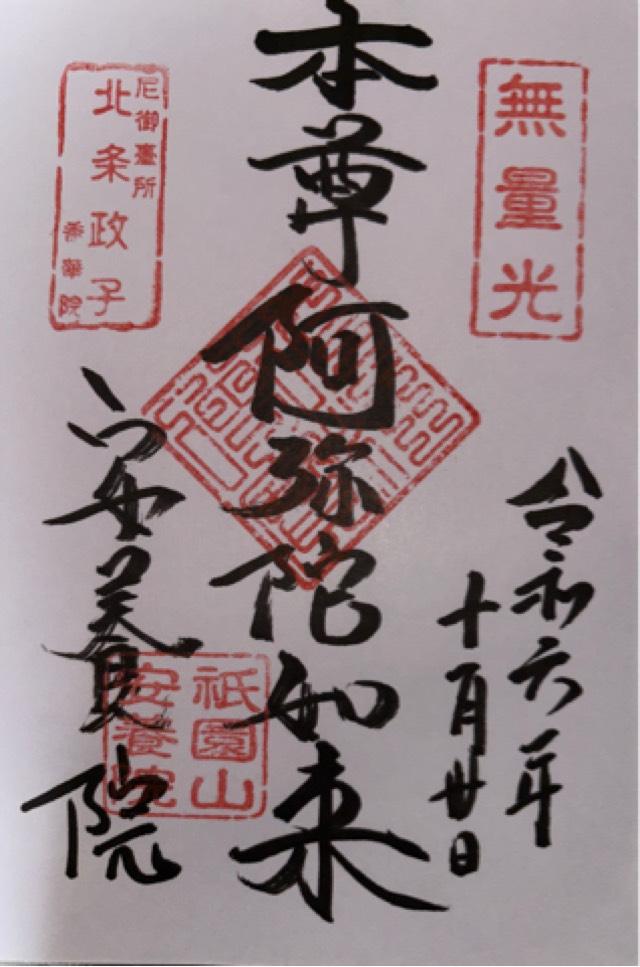 無量光
令和六年
十月廿日
本尊阿弥陀如来
尼御臺所
北条政子
香華院
安養院
祇園山
安養院